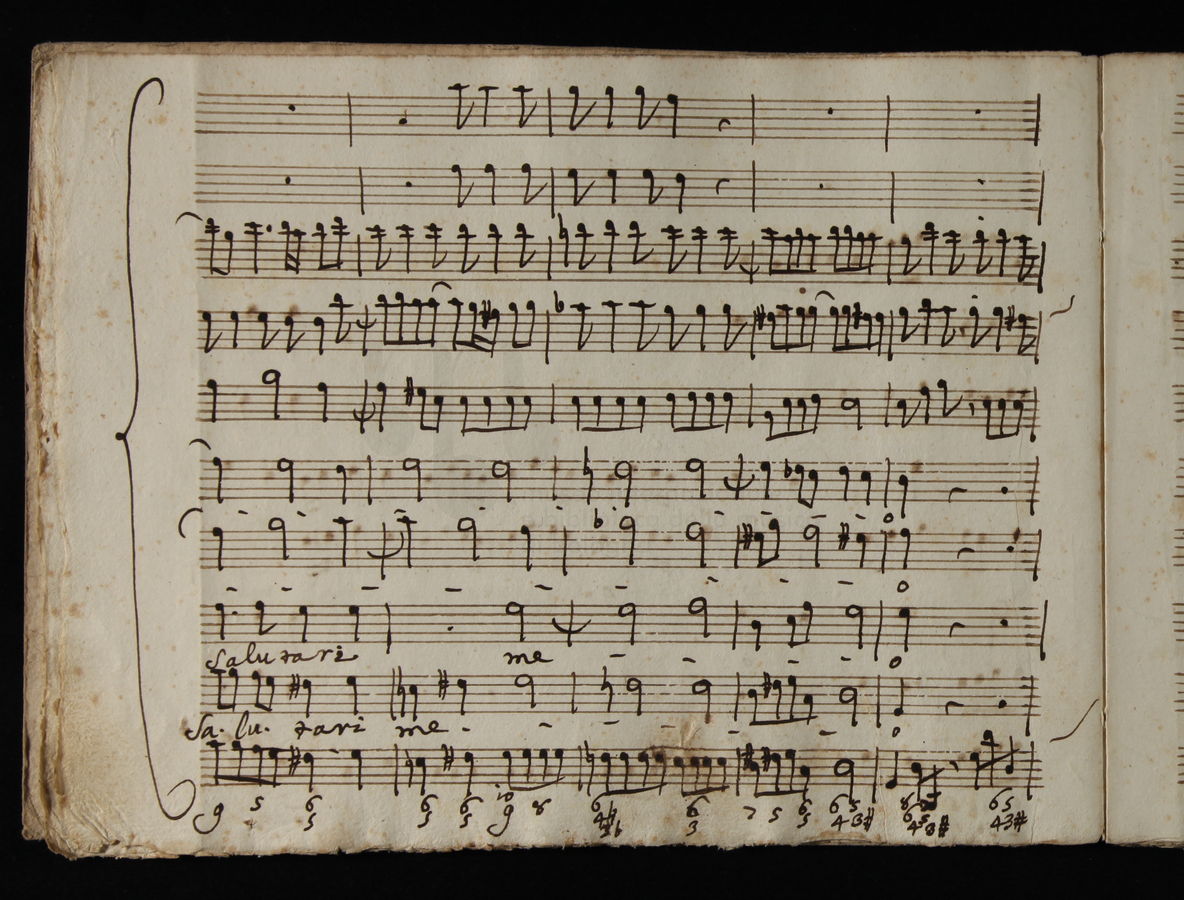 salutari me o
Sa. lu. tari me. o
9 5 6 5 6 5 6 5 10 9 8 6 3 7 5 6 5 6 4 5 3# 6 4 5 3#